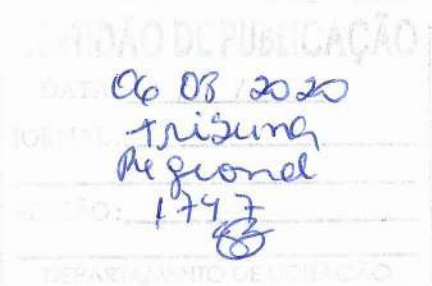 CERTIDÃO DE PUBLICAÇÃO
DATA 06 03 /2020
JORNAL Tribuna
Regional
EDIÇÃO: 1747
DEPARTAMENTO DE LICITAÇÃO